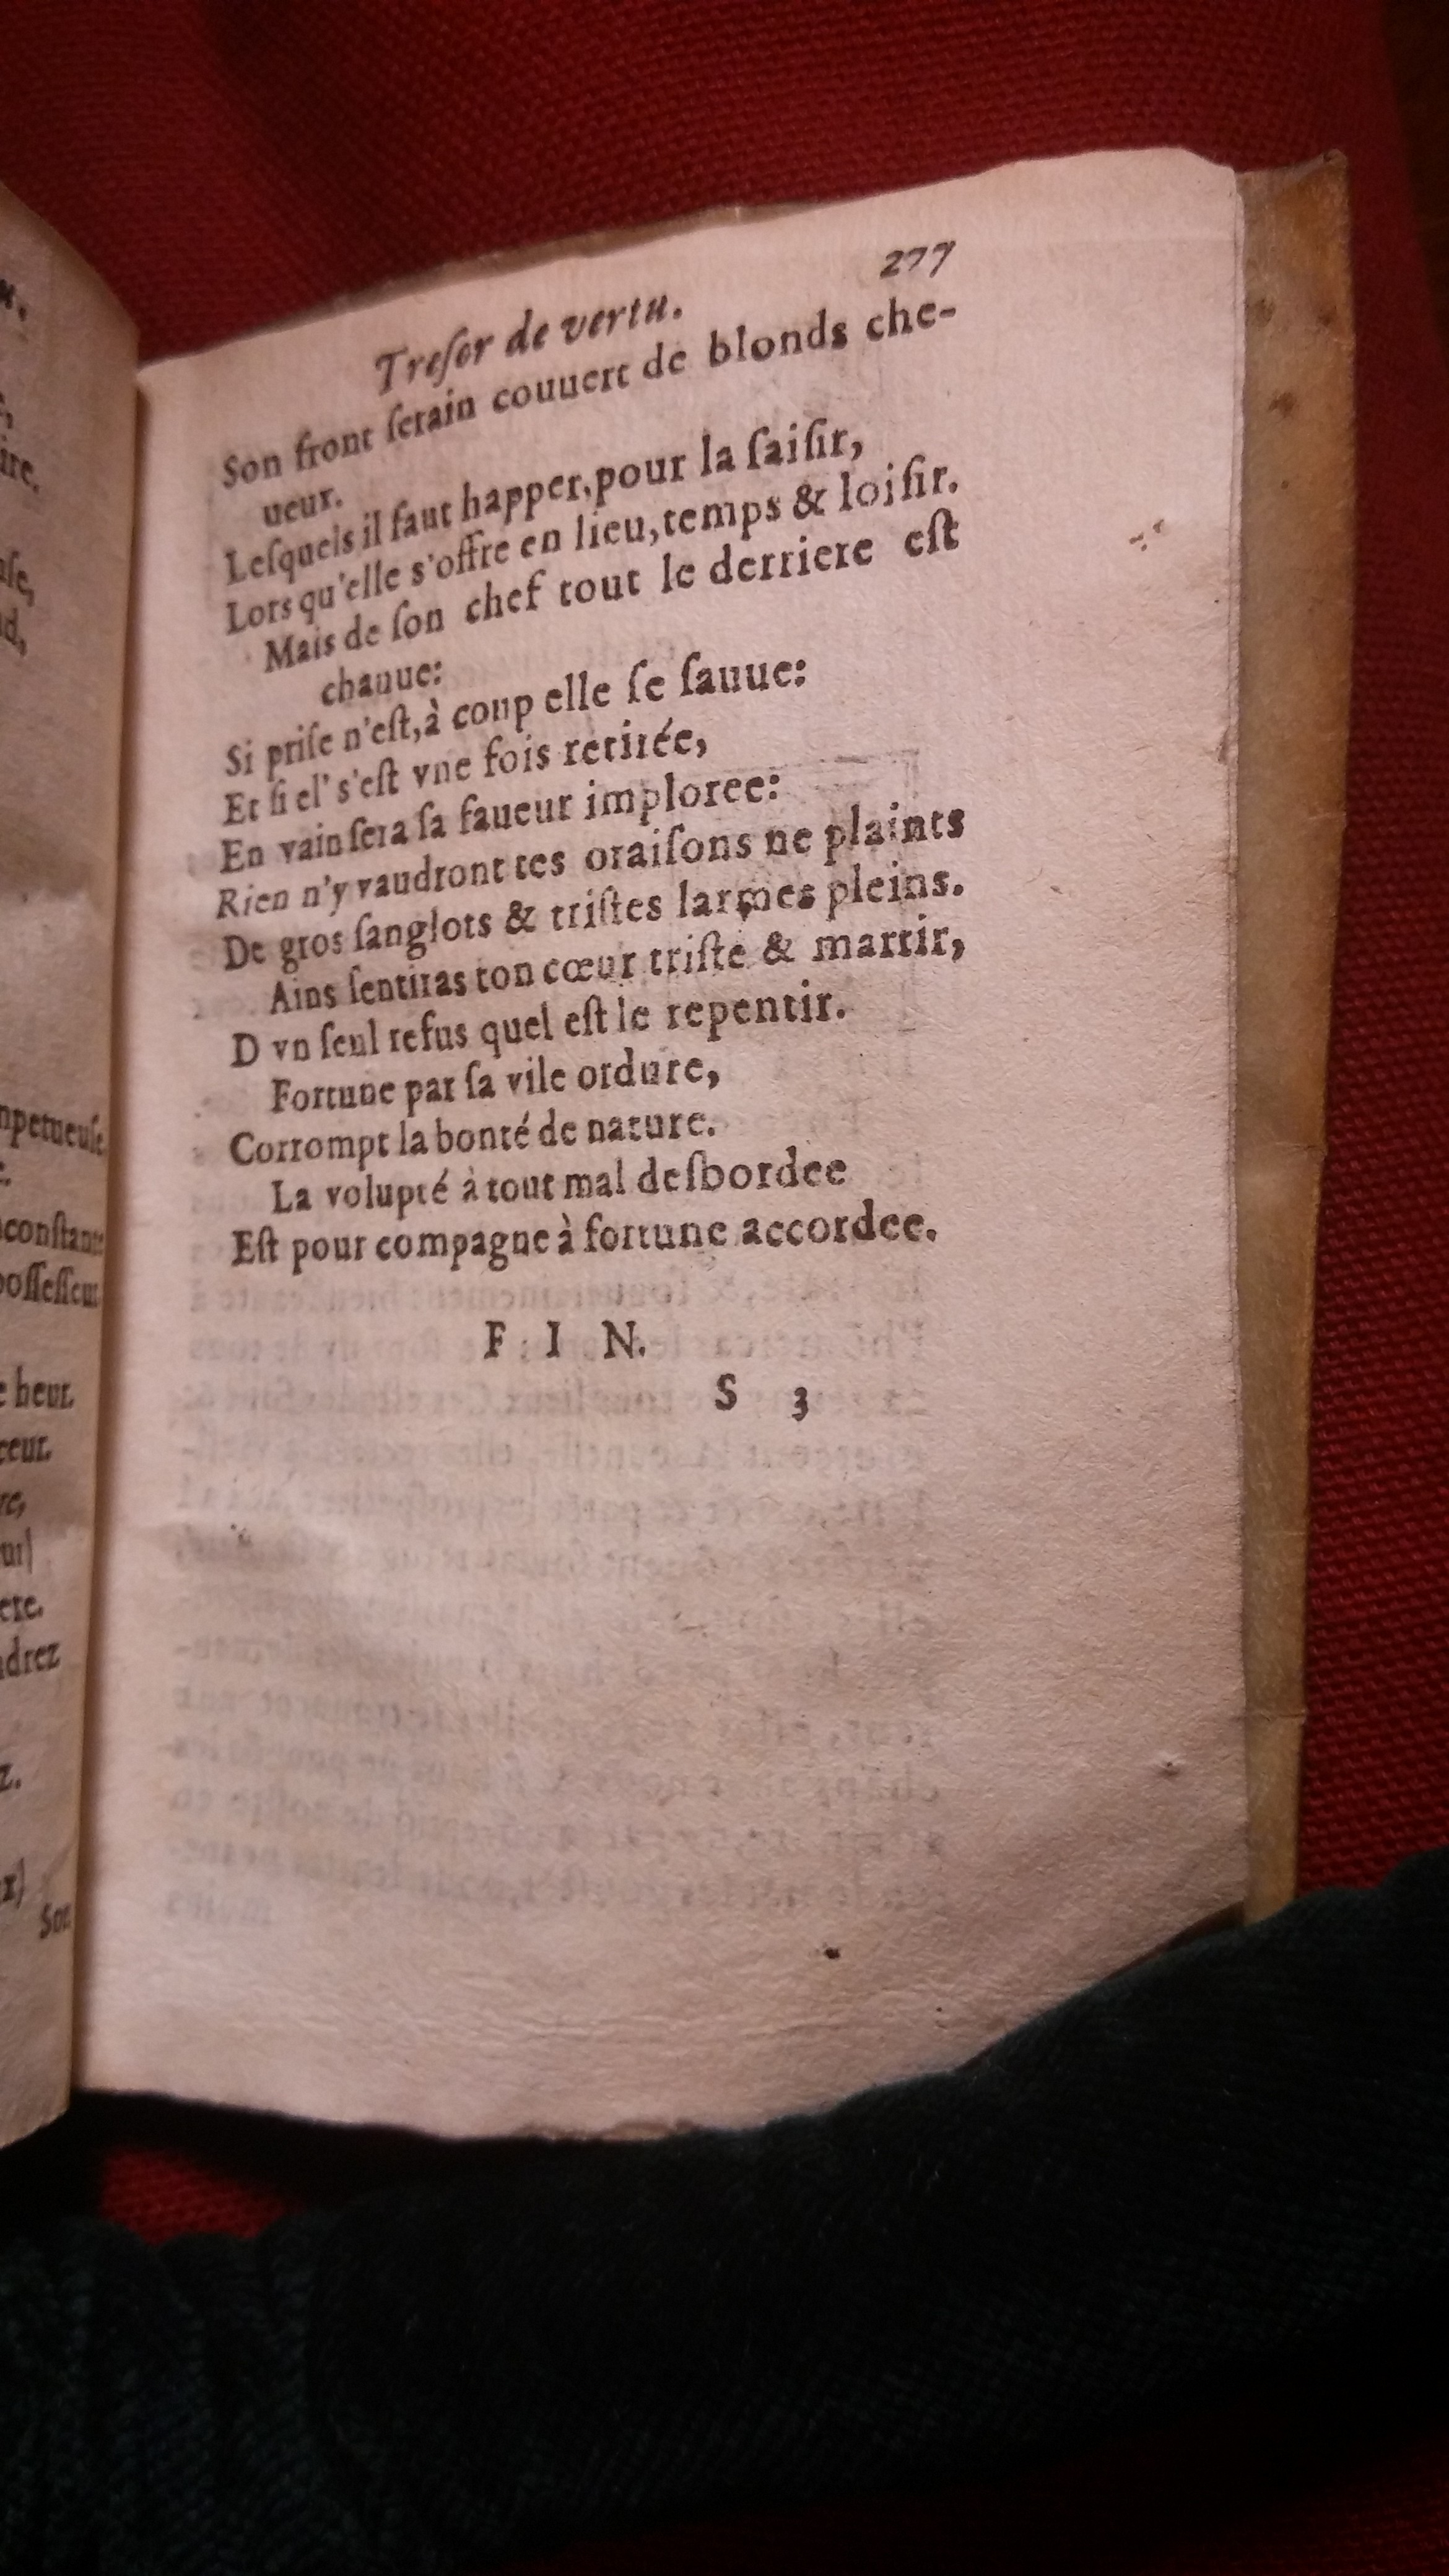 277
Treſor de vertu.
Son front ſerain couuert de blonds che-
ueur.
Leſquels il faut happer, pour la ſaiſir,
Lors qu'elle s'offre en lieu, temps & loiſir.
Mais de ſon chef tout le derriere eſt
chauue:
Si priſe n'eſt, à coup elle ſe ſauue:
Et ſi el' s'eſt vne fois retirée,
En vain ſera ſa faueur imploree:
Rien n'y vaudront tes oraiſons ne plaints
De gros ſanglots & triſtes larmes pleins.
Ains ſentiras ton cœur triſte & martir,
D vn ſeul refus quel eſt le repentir.
Fortune par ſa vile ordure,
Corrompt la bonté de nature.
La volupté à tout mal deſbordee
Eſt pour compagne à fortune accordee.
F I N.
S 3